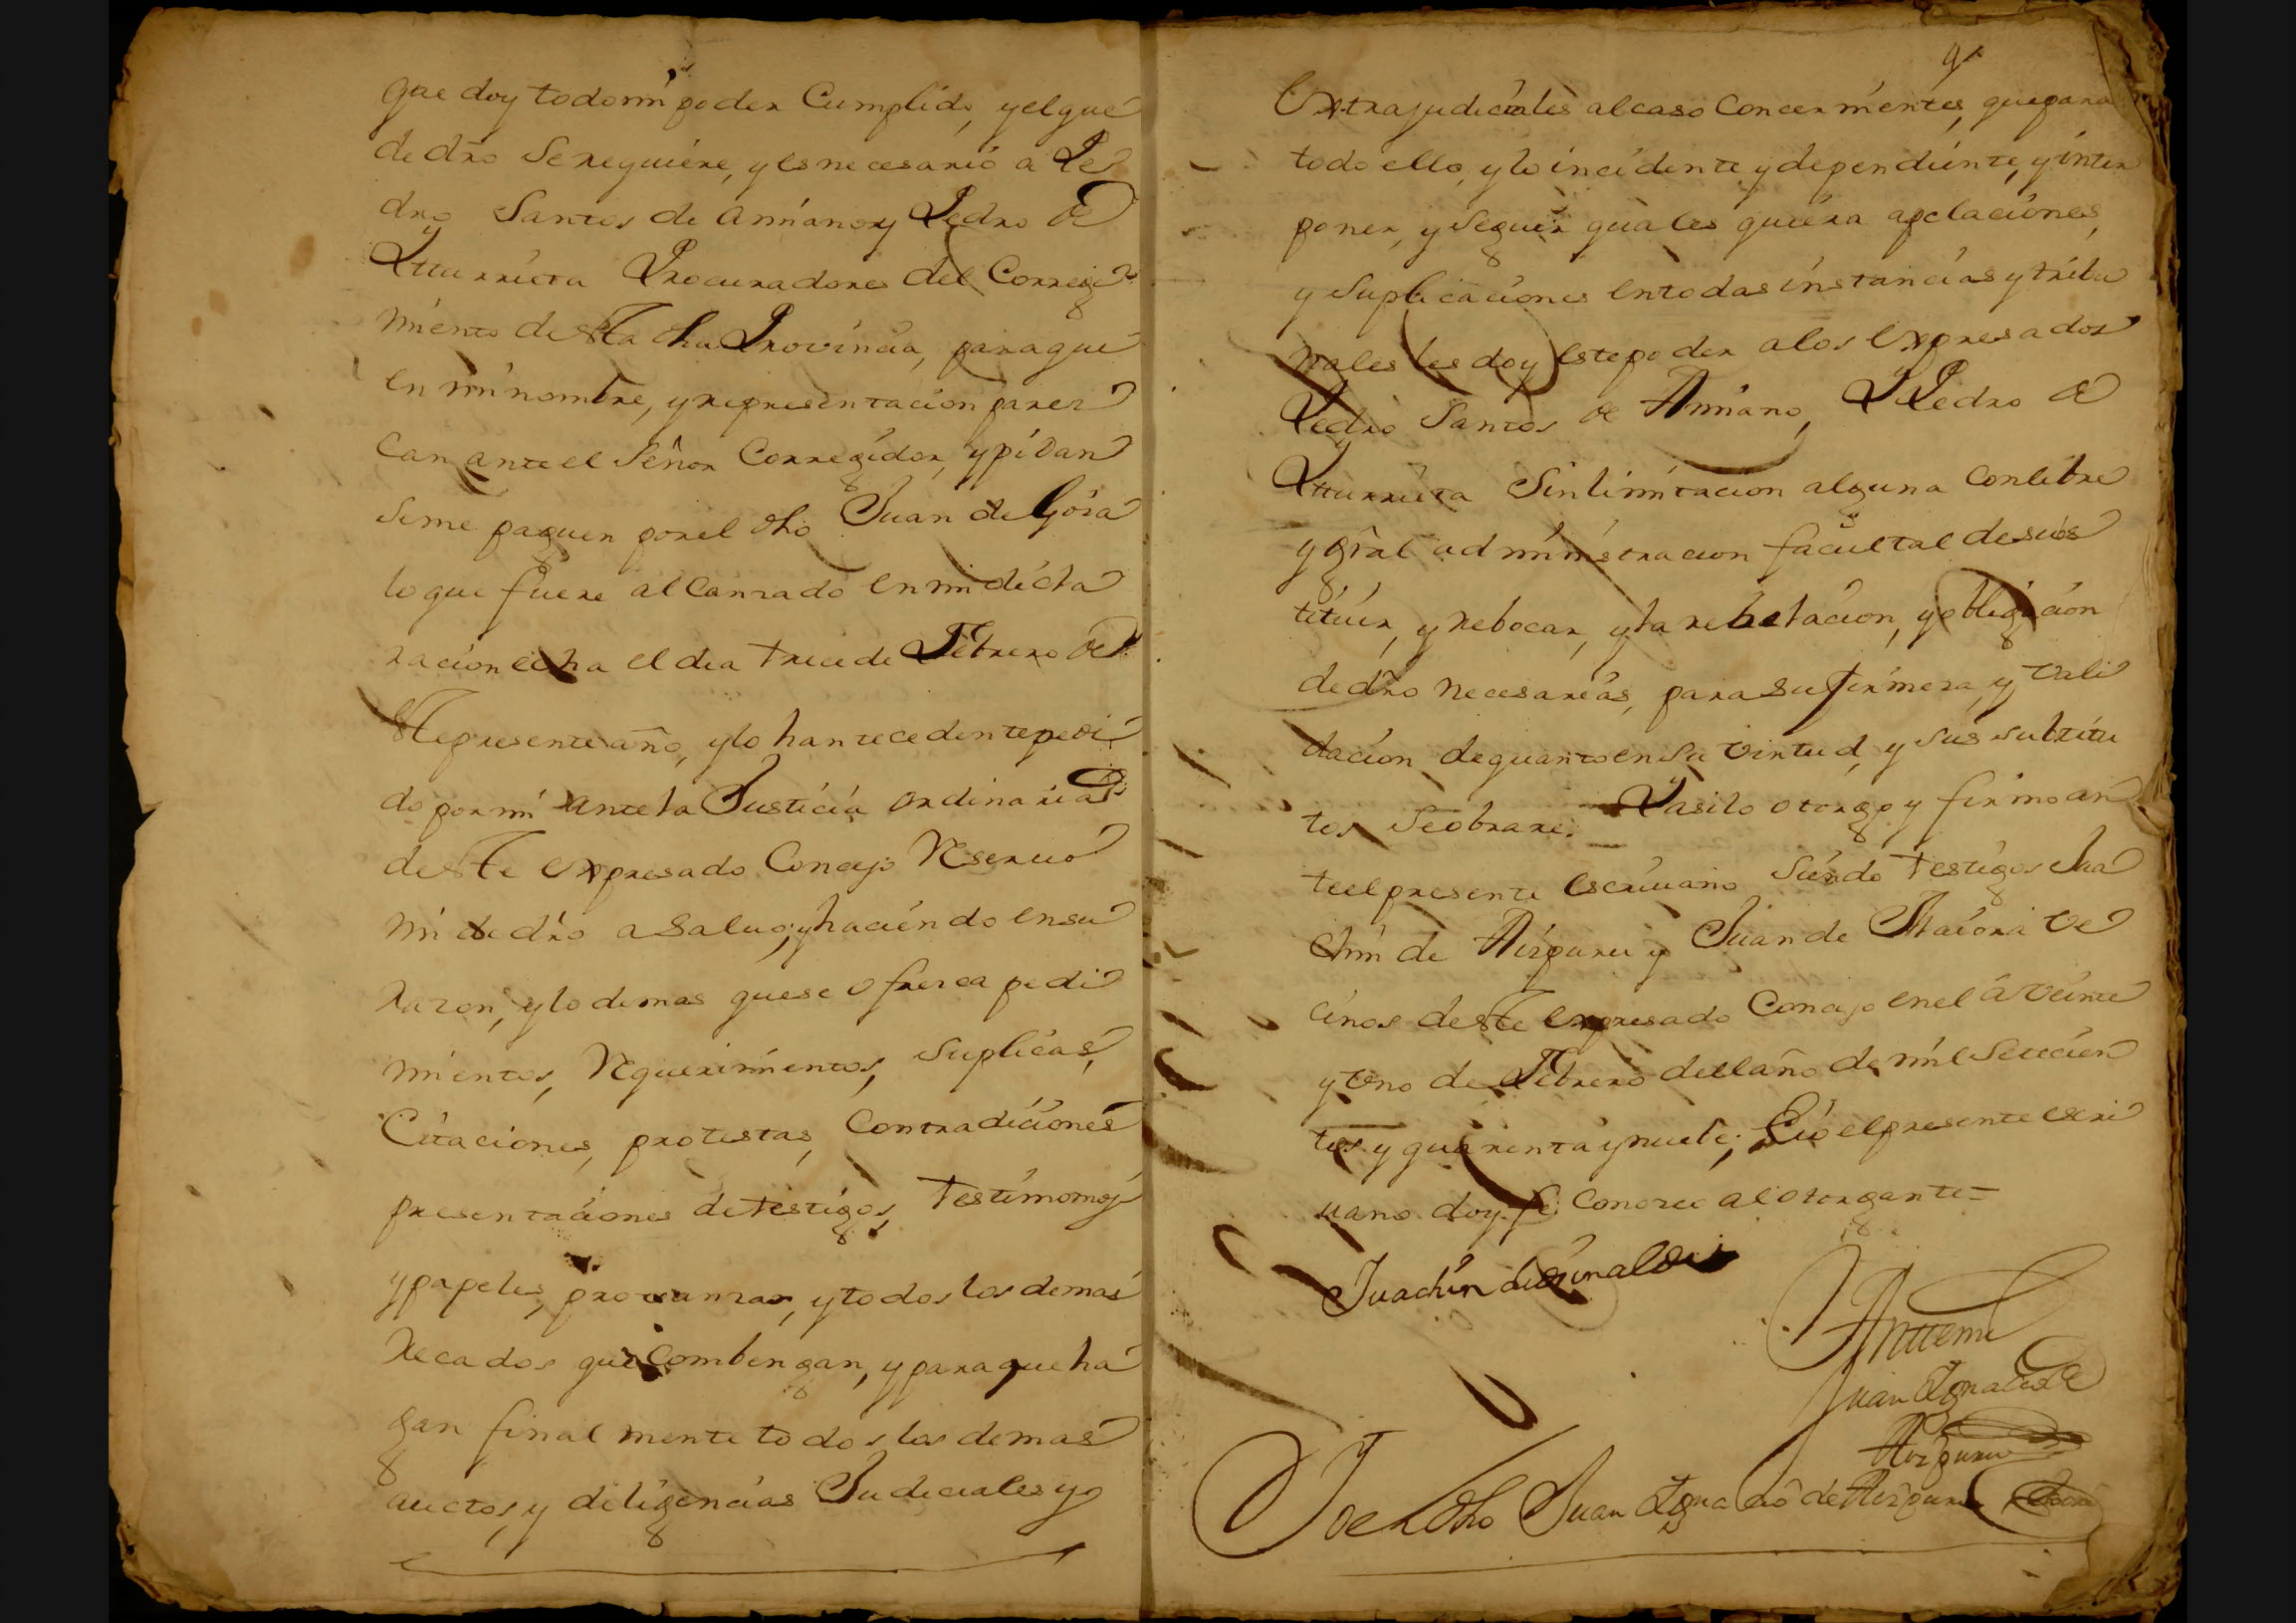 que doy todo mi poder Cumplido, y el que
de dr̃o Se requiere, y es necesario a Pe
dro Santos de Amiano y Pedro de
Ytturrieta Procuradores del Correxi
miento de esta dha Provincia, para que
en mi nombre, y representacion parez
can ante el Señor Corregidor, y pidan
se me paguen por el dho Juan de
lo que fuere alcanzado en mi decla
racion echa el dia trece de Febrero de
este presente año, y lo hantecedente pedi
do por mi ante la Justicia ordinaria
de este expresado Concejo Reseruo
mi de dr̃o a saluo, y haciendo en su
razon, y lo demas que se ofrezca pedi
mientos, Requerimientos, Suplicas,
Citaciones, protestas, Contradiciones
presentaciones de testigos, Testimonios
y papeles, prouanzas, y todos los demas
Recados que Combengan, y para que ha
gan finalmente todos los demas
auctos, y diligencias Judiciales y
9
Extrajudiciales al caso Concernientes, que para
todo ello, y lo incidente y dependiente, y inter
poner, y seguir quales quiera apelaciones,
y Suplicaciones en todas instancias y tribu
nales les doy este poder a los Expresados
Pedro Santos de Amiano, Y Pedro de
Ytturrieta Sin limitacion alguna Con libre
y gr̃al administracion facultad de sus
tituir, y Rebocar, y la rebelacion, y obligacion
de dr̃o necesarias, para su firmeza, y vali
dacion de quanto en su virtud, y sus substitu
tos Se obrare. Y asi lo otorgo y firmo an
te el presente escriuano Siendo Testigos Jua
chin de Aizpuru y Juan de Ytaiora Ve
cinos de este Expresado Concejo en el a veinte
y Vno de Febrero del año de mil Setecien
tos y quarenta y nuebe; E io el presente escri
uano doy fe Conozco al otorgante=
Juachin de
Anttemi
Juan Ignacio de
Aizpuru
Yo el dho Juan Ignacio de Aizpuru